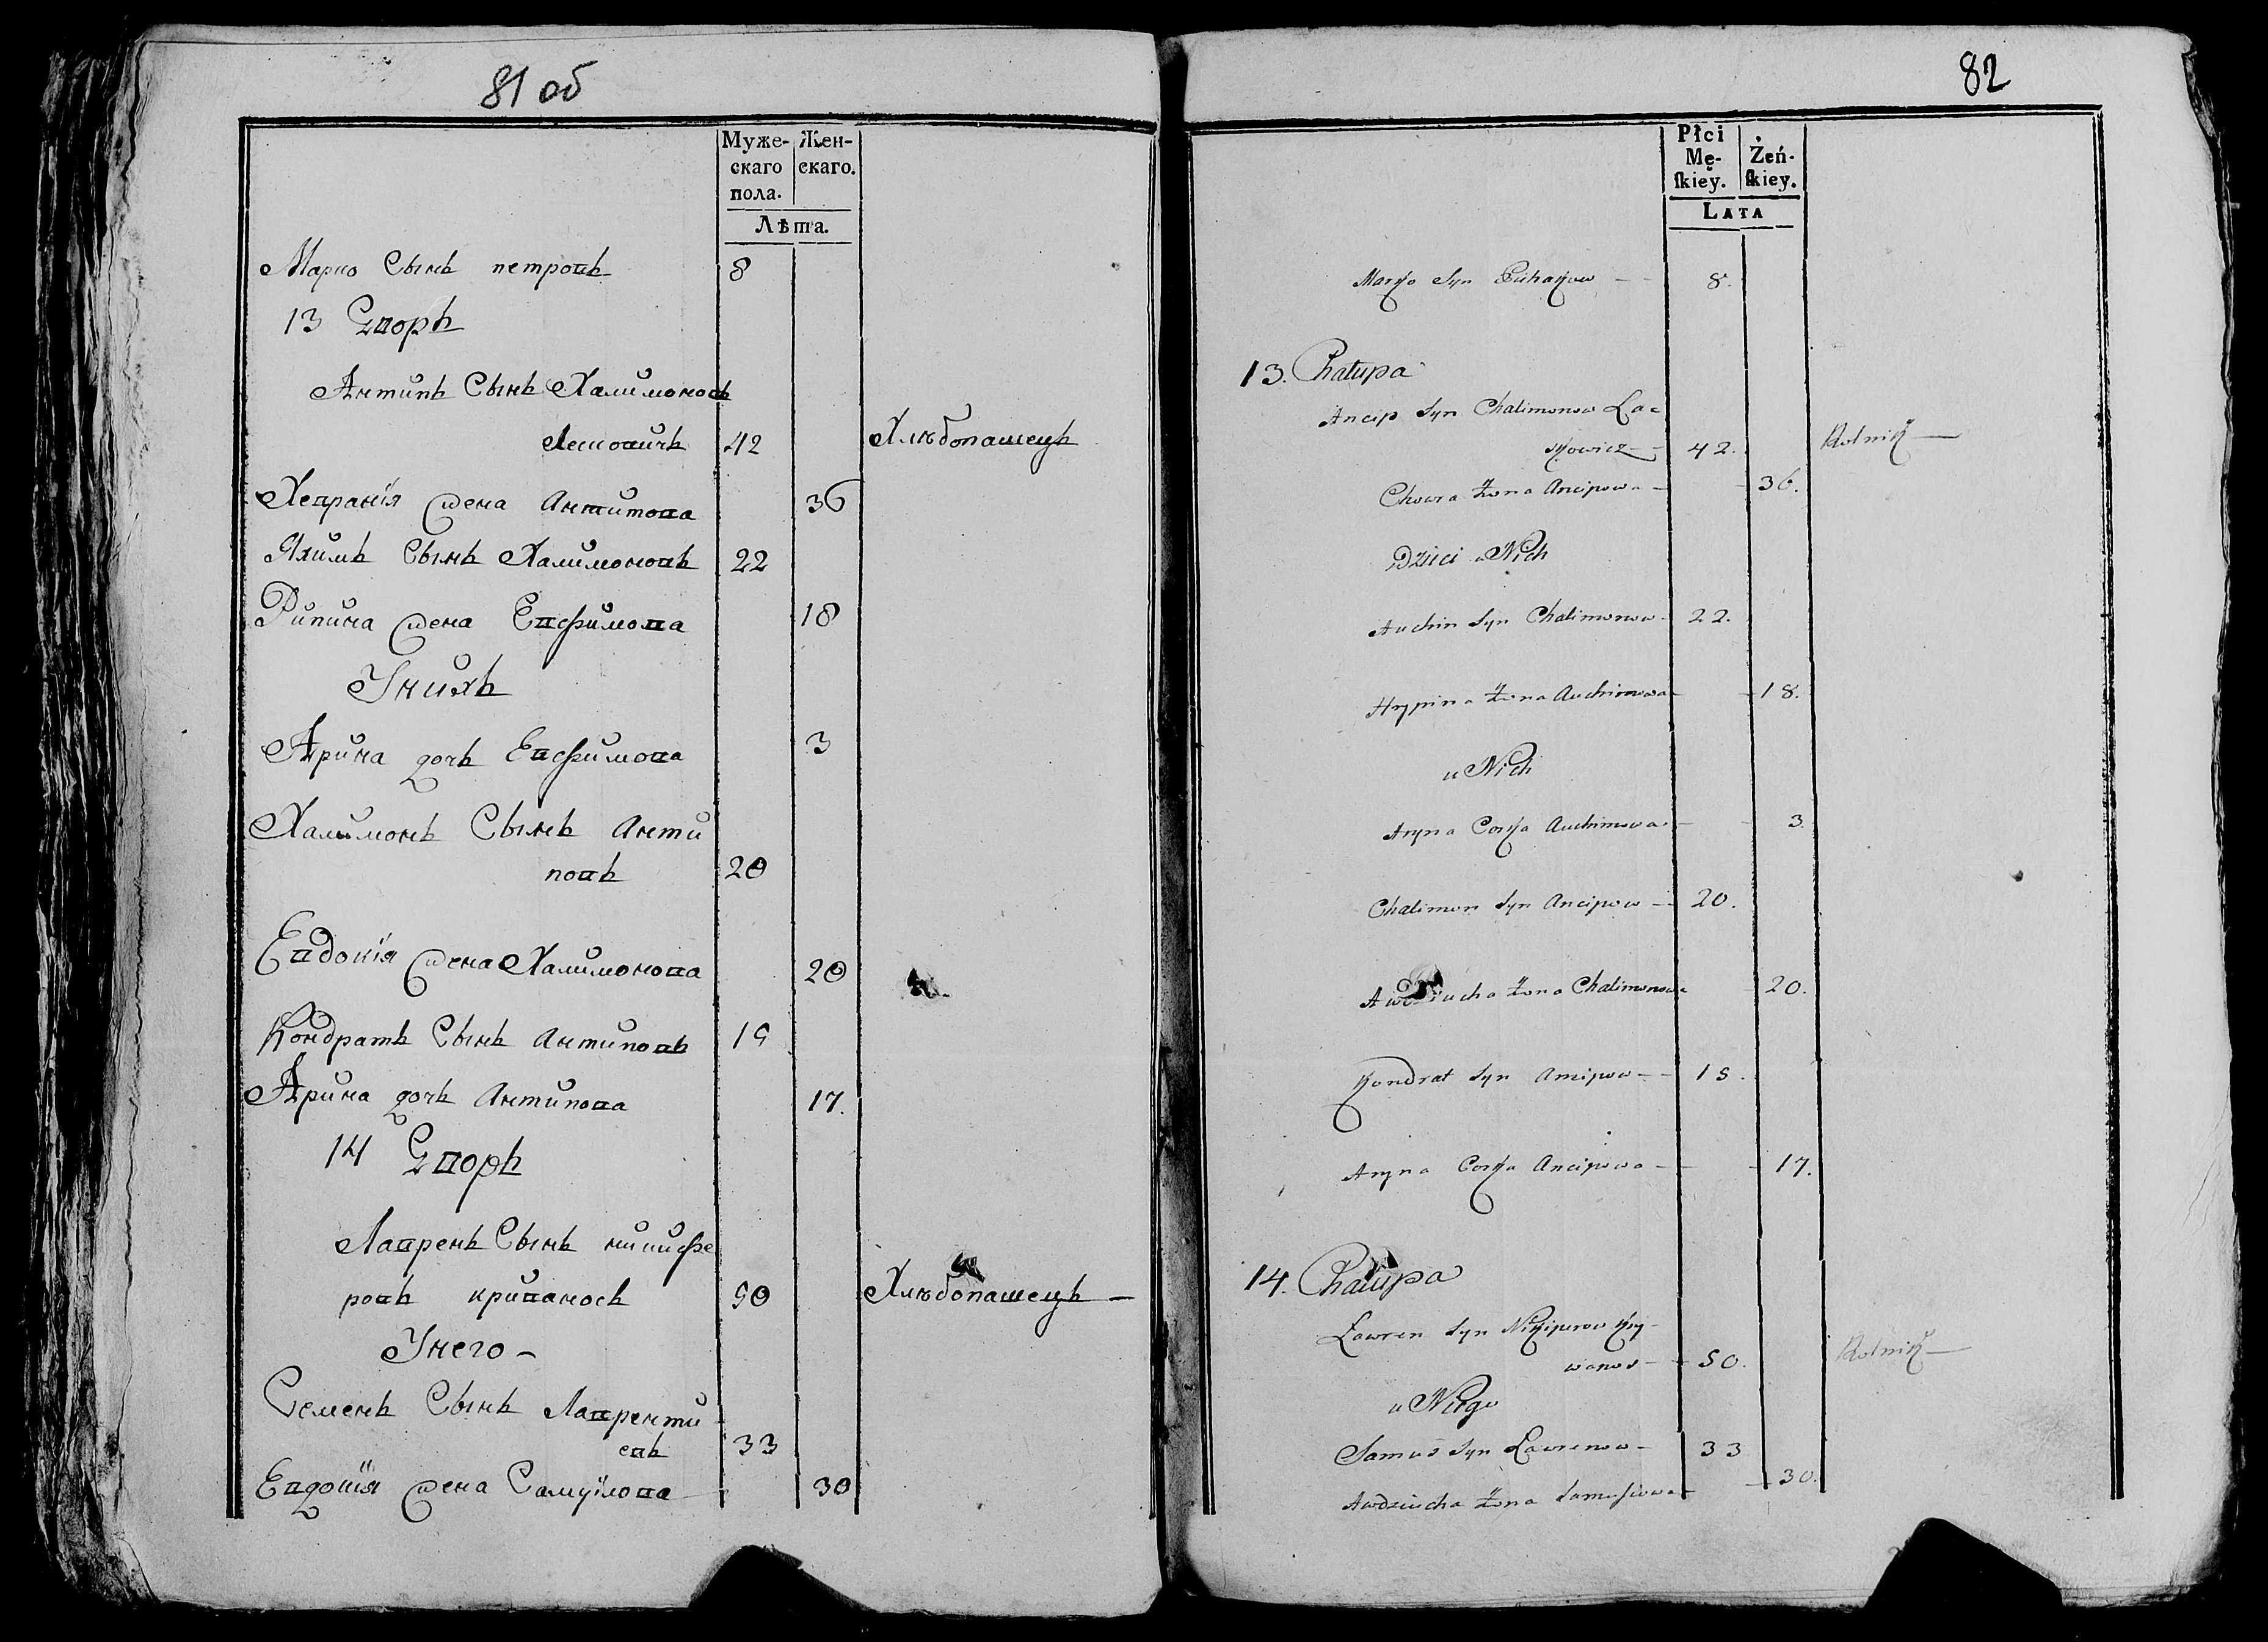 81 об
Муже- Жен-
скаго скаго.
пола.
Лѣта.
Марко Сынъ петровъ 8
13 Дворъ
Антипъ Сынъ Халимоновъ
42 Хлѣбопашецъ
Хевранія жена Антипова 36
Яхимъ Сынъ Халимоновъ 22
жена Евфимова 18
Унихъ
Арина дочь Евфимова 3
Халимонъ Сынъ Анти
повъ 20
Евдокія жена Халимонова 20
Кондратъ Сынъ Антиповъ
Арина дочь Антипова 17.
14 Дворъ
Лавренъ Сынъ никифе
ровъ криваносъ 50 Хлѣбопашецъ —
Унего –
Семенъ Сынъ Лавренти
евъ 33
Евдокія жена Самуйлова 30
82
Płci
Mę- Żeń-
ſkiey. ſkiey.
Lata
Marko Syn 8.
13. Chałupa
Ancip Syn Chalimonow Las
kowicz — 42. Rolnik —
Chowra Żona Ancipowa — 36.
Dzieci u Nich
Auchim Syn Chalimonow — 22.
Hrypina Żona Auchimowa — 18.
u Nich
Aryna Corka Auchimowa — 3.
Chalimon Syn Ancipow — 20.
Awdziucha Żona Chalimonowa 20.
Kondrat Syn Ancipow —
Aryna Corka Ancipowa — 17.
14. Chałupa
Ławren Syn Nikiperow Kry-
wonos — 50. Rolnik —
u Niego
Samuś Syn Ławrenow — 33
Awdziucha Żona Samusiowa — 30.